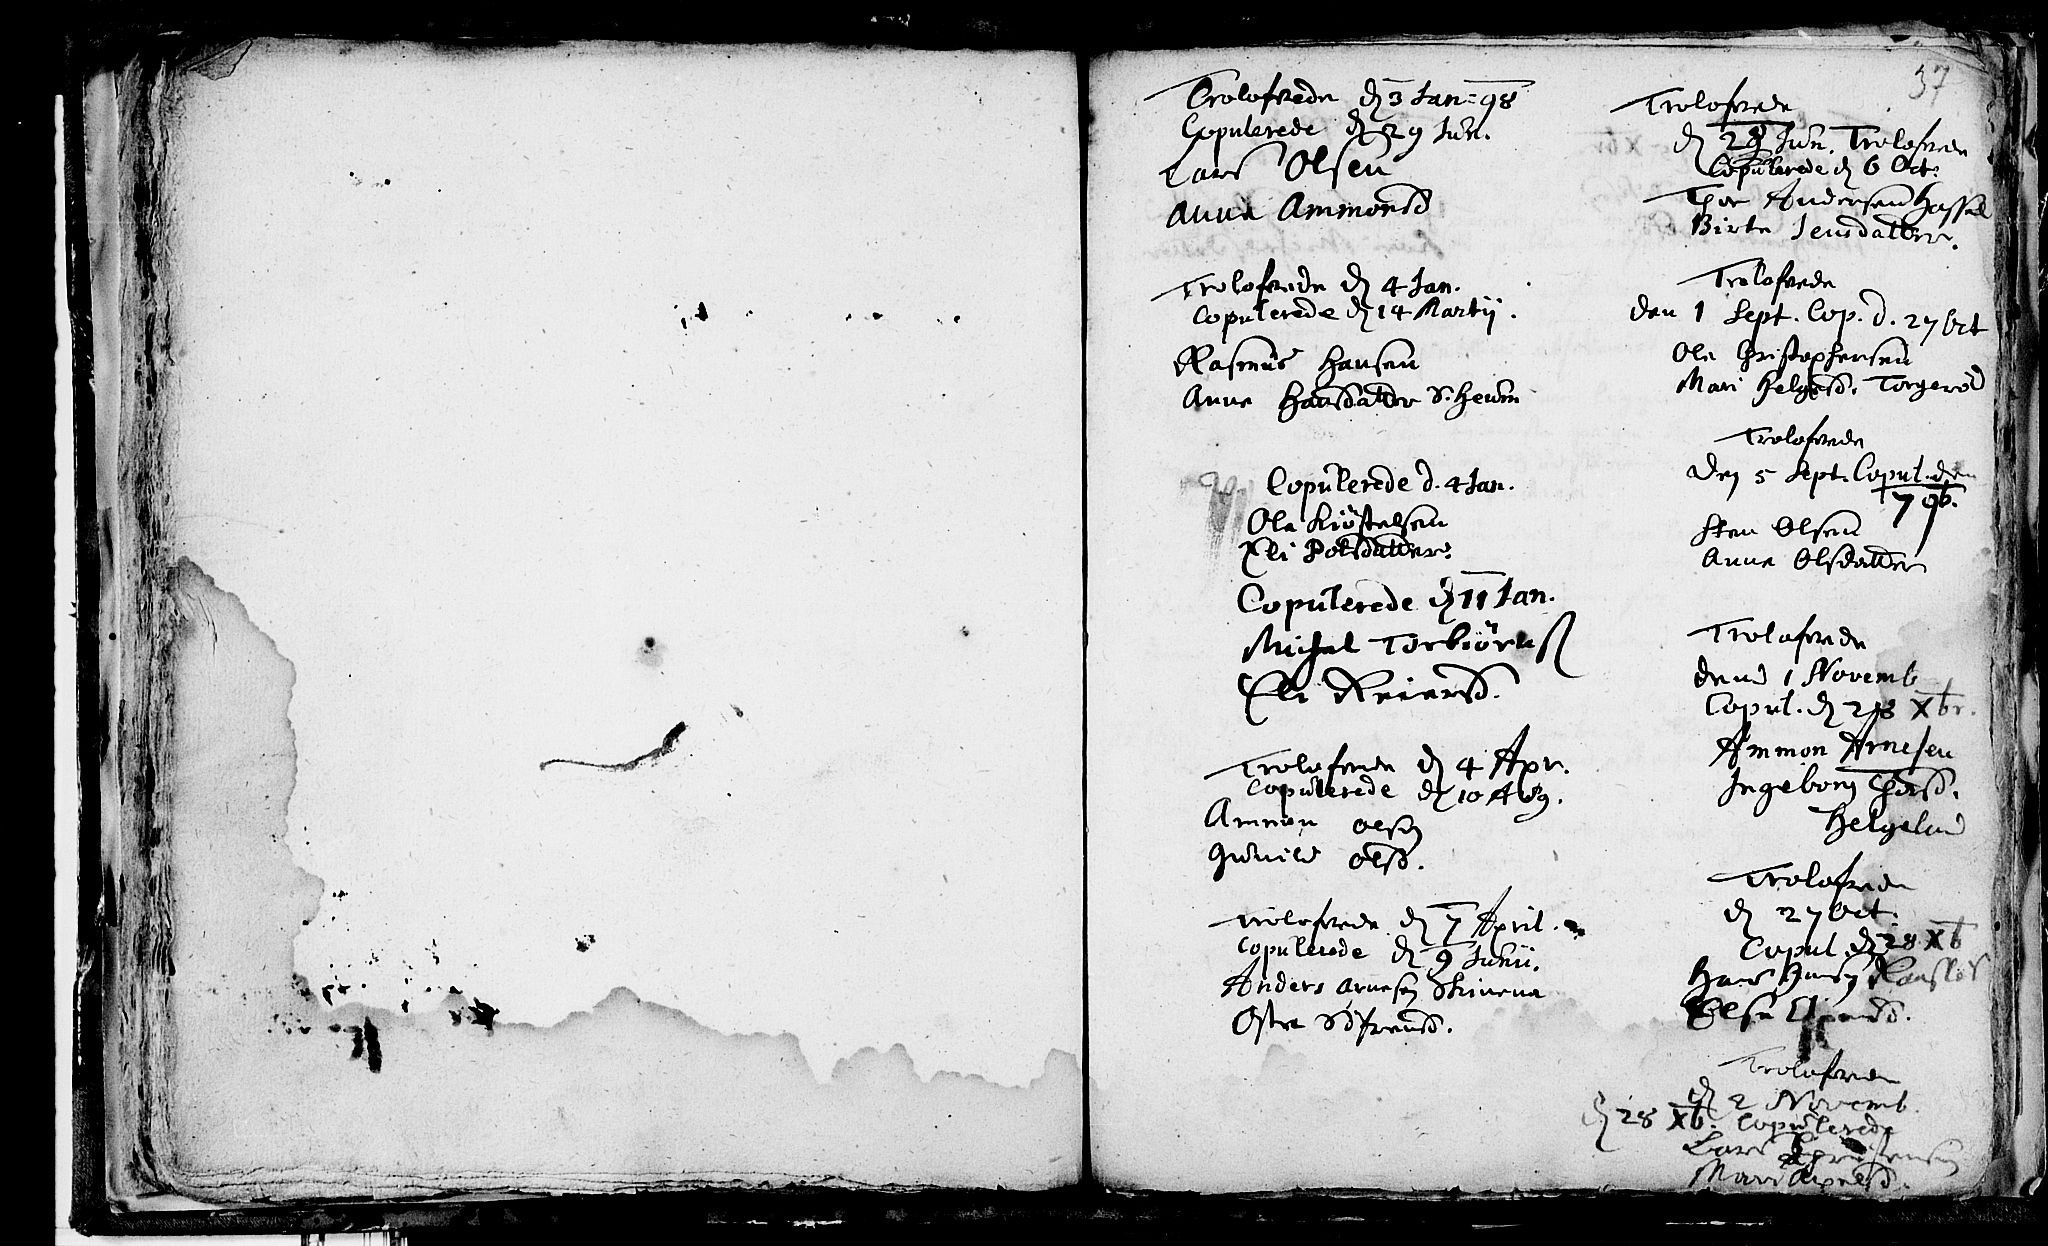 37
Trolofvede dn 3 Jan= 98
Copulerede dn 29 Jun.
Lars Olsen
Anna Ammorsd
Trolofvede dn 4 Jan.
Copulerede dn 14 Martij.
Rasmus Hansen
Anna Hansdatter
Copulerede d. 4 Jan.
Ole Kiöstelsen
Eli Polsdatter.
Copulerede dn 11 Jan.
Michel Torbiörns
Eli Reiersd.
Trolofvede dn 4 Apr.
Copulerede dn 10 Aug.
Ammon Olsen
Gunild Olsd.
Trolofvede dn 7 April.
Copulerede dn 9 Junii.
Anders Arnesen Skinena
Ostre Söfrensd.
Trolofvede
dn 28 Jun. Trolofvede
Copulerede dn 6 Oct.
Thor Andersen Hassel
Birte Jensdatter.
Trolofvede
den 1 Sept. Cop. d. 27 Oct
Ole Christophersen
Mari Helgesd. Torgerød
Trolofvede
den 5 Sept. Copul. den
7 9b.
Sten Olsen
Anna Olsdatter
Trolofvede
dend 1 Novemb
Copul. dn 28 Xbr.
Ammon Arnesen
Ingeborg Thorsd.
Helgeland
Trolofvede
dn 27 Oct.
Copul dn 28 Xb
Hans Hansen
Else
Trolofvede
dn 2 Novemb.
dn 28 Xb. Copulerede
Lars
Mari